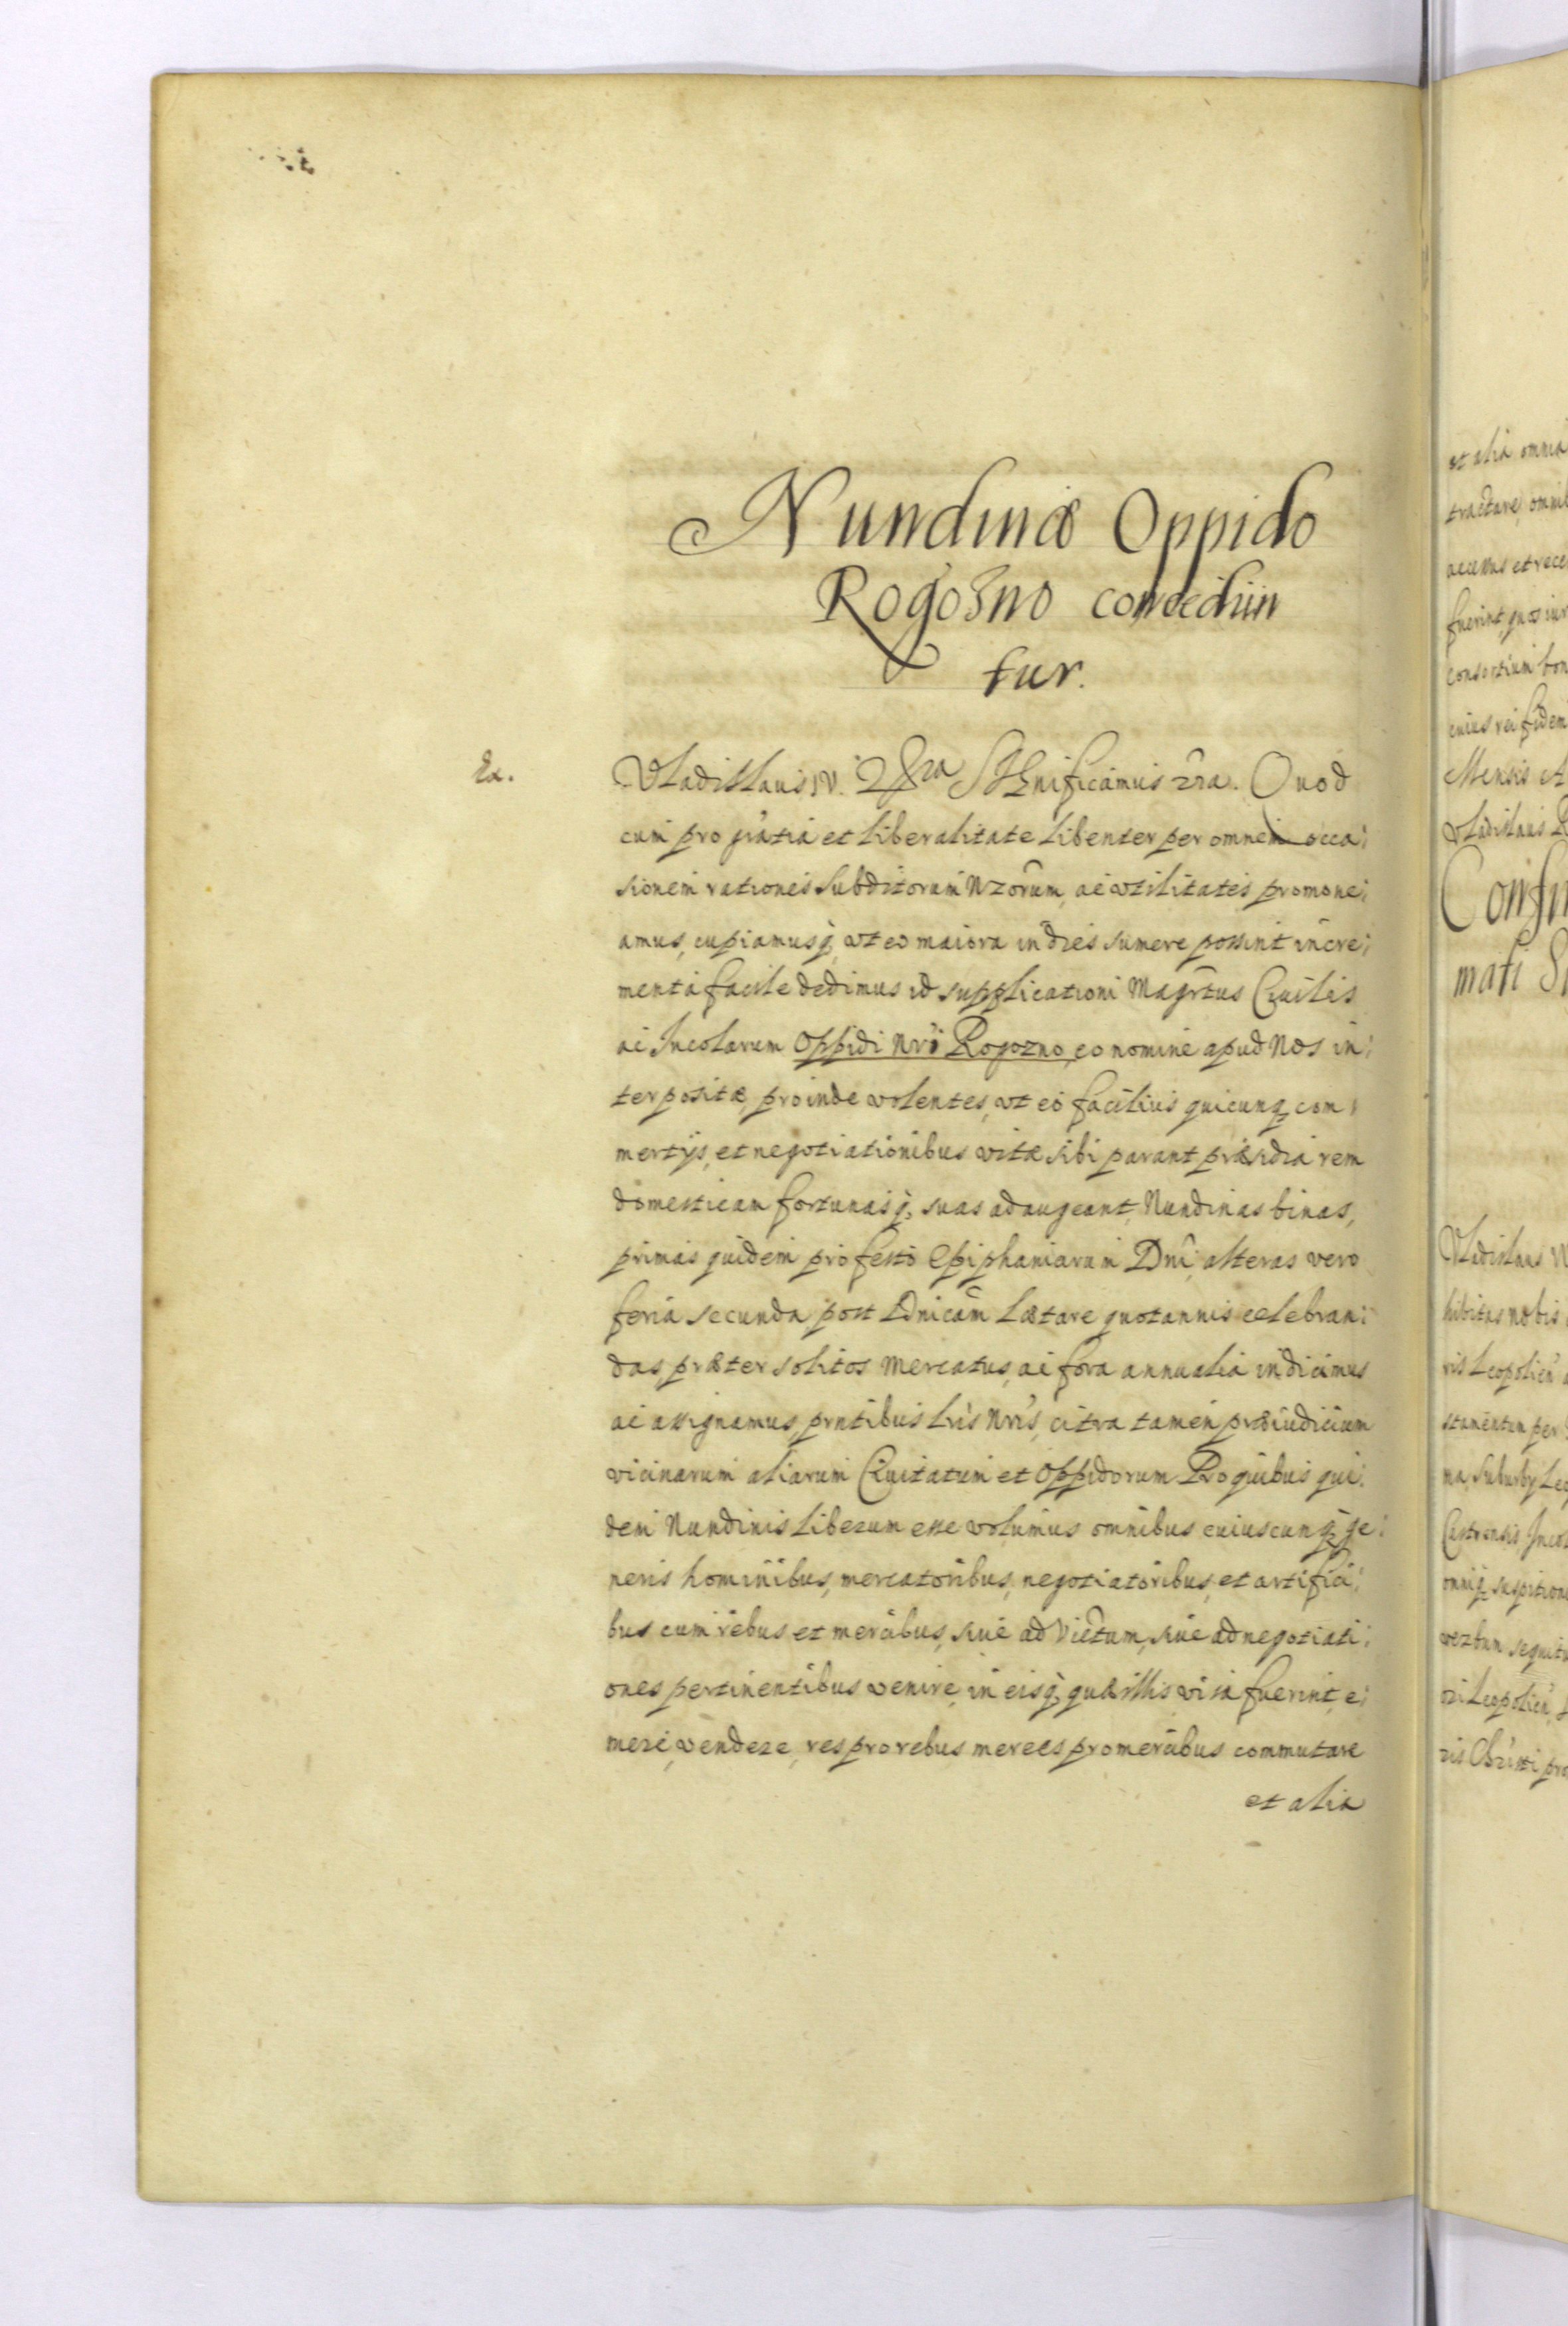 Nundinæ Oppido
Rogozno concedun
tur.
Ex.
Vladislaus IV. Significamus Quod
cum pro gratia et liberalitate libenter per omnem occa:
sionem rationes Subditorum Nrorum, ac vtilitates promoue:
amus, cupiamusq, vt eo maiora in dies sumere possint incre:
menta facile dedimus id supplicationi Magrtus Ciuilis
ac Incolarum Oppidi Nri Rogozno, eo nomine apud Nos in:
terpositæ, proinde volentes, vt eo facilius quicunq, com:
mertijs, et negotiationibus vitæ sibi parant præsidia rem
domesticam fortunasq, suas adaugeant, Nundinas binas,
primas quidem pro festo Epiphaniarum Dni, alteras vero
feria secunda post Dnicam Lætare quotannis celebran:
das, præter solitos Mercatus, ac fora annualia indicimus
ac assignamus, prntibus Lris Nris, citra tamen præiudicium
vicinarum aliarum Ciuitatum et Oppidorum Pro quibus qui:
dem Nundinis liberum esse volumus omnibus cuiuscunq, ge:
neris hominibus, mercatoribus, negotiatoribus, et artifici:
bus cum rebus et mercibus, siue ad Victum, siue ad negotiati:
ones pertinentibus venire, in eisq, quæ illis visa fuerint, e:
mere, vendere, res pro rebus merces pro mercibus commutare
et alia
et alia omnia
tractare, omnib
fuerint, quos iur
consortium bon
cuius rei fidem
Mensis A
Vladislaus R
Confir
mati
Vladislaus
hibitas nobis
ris Leopolien